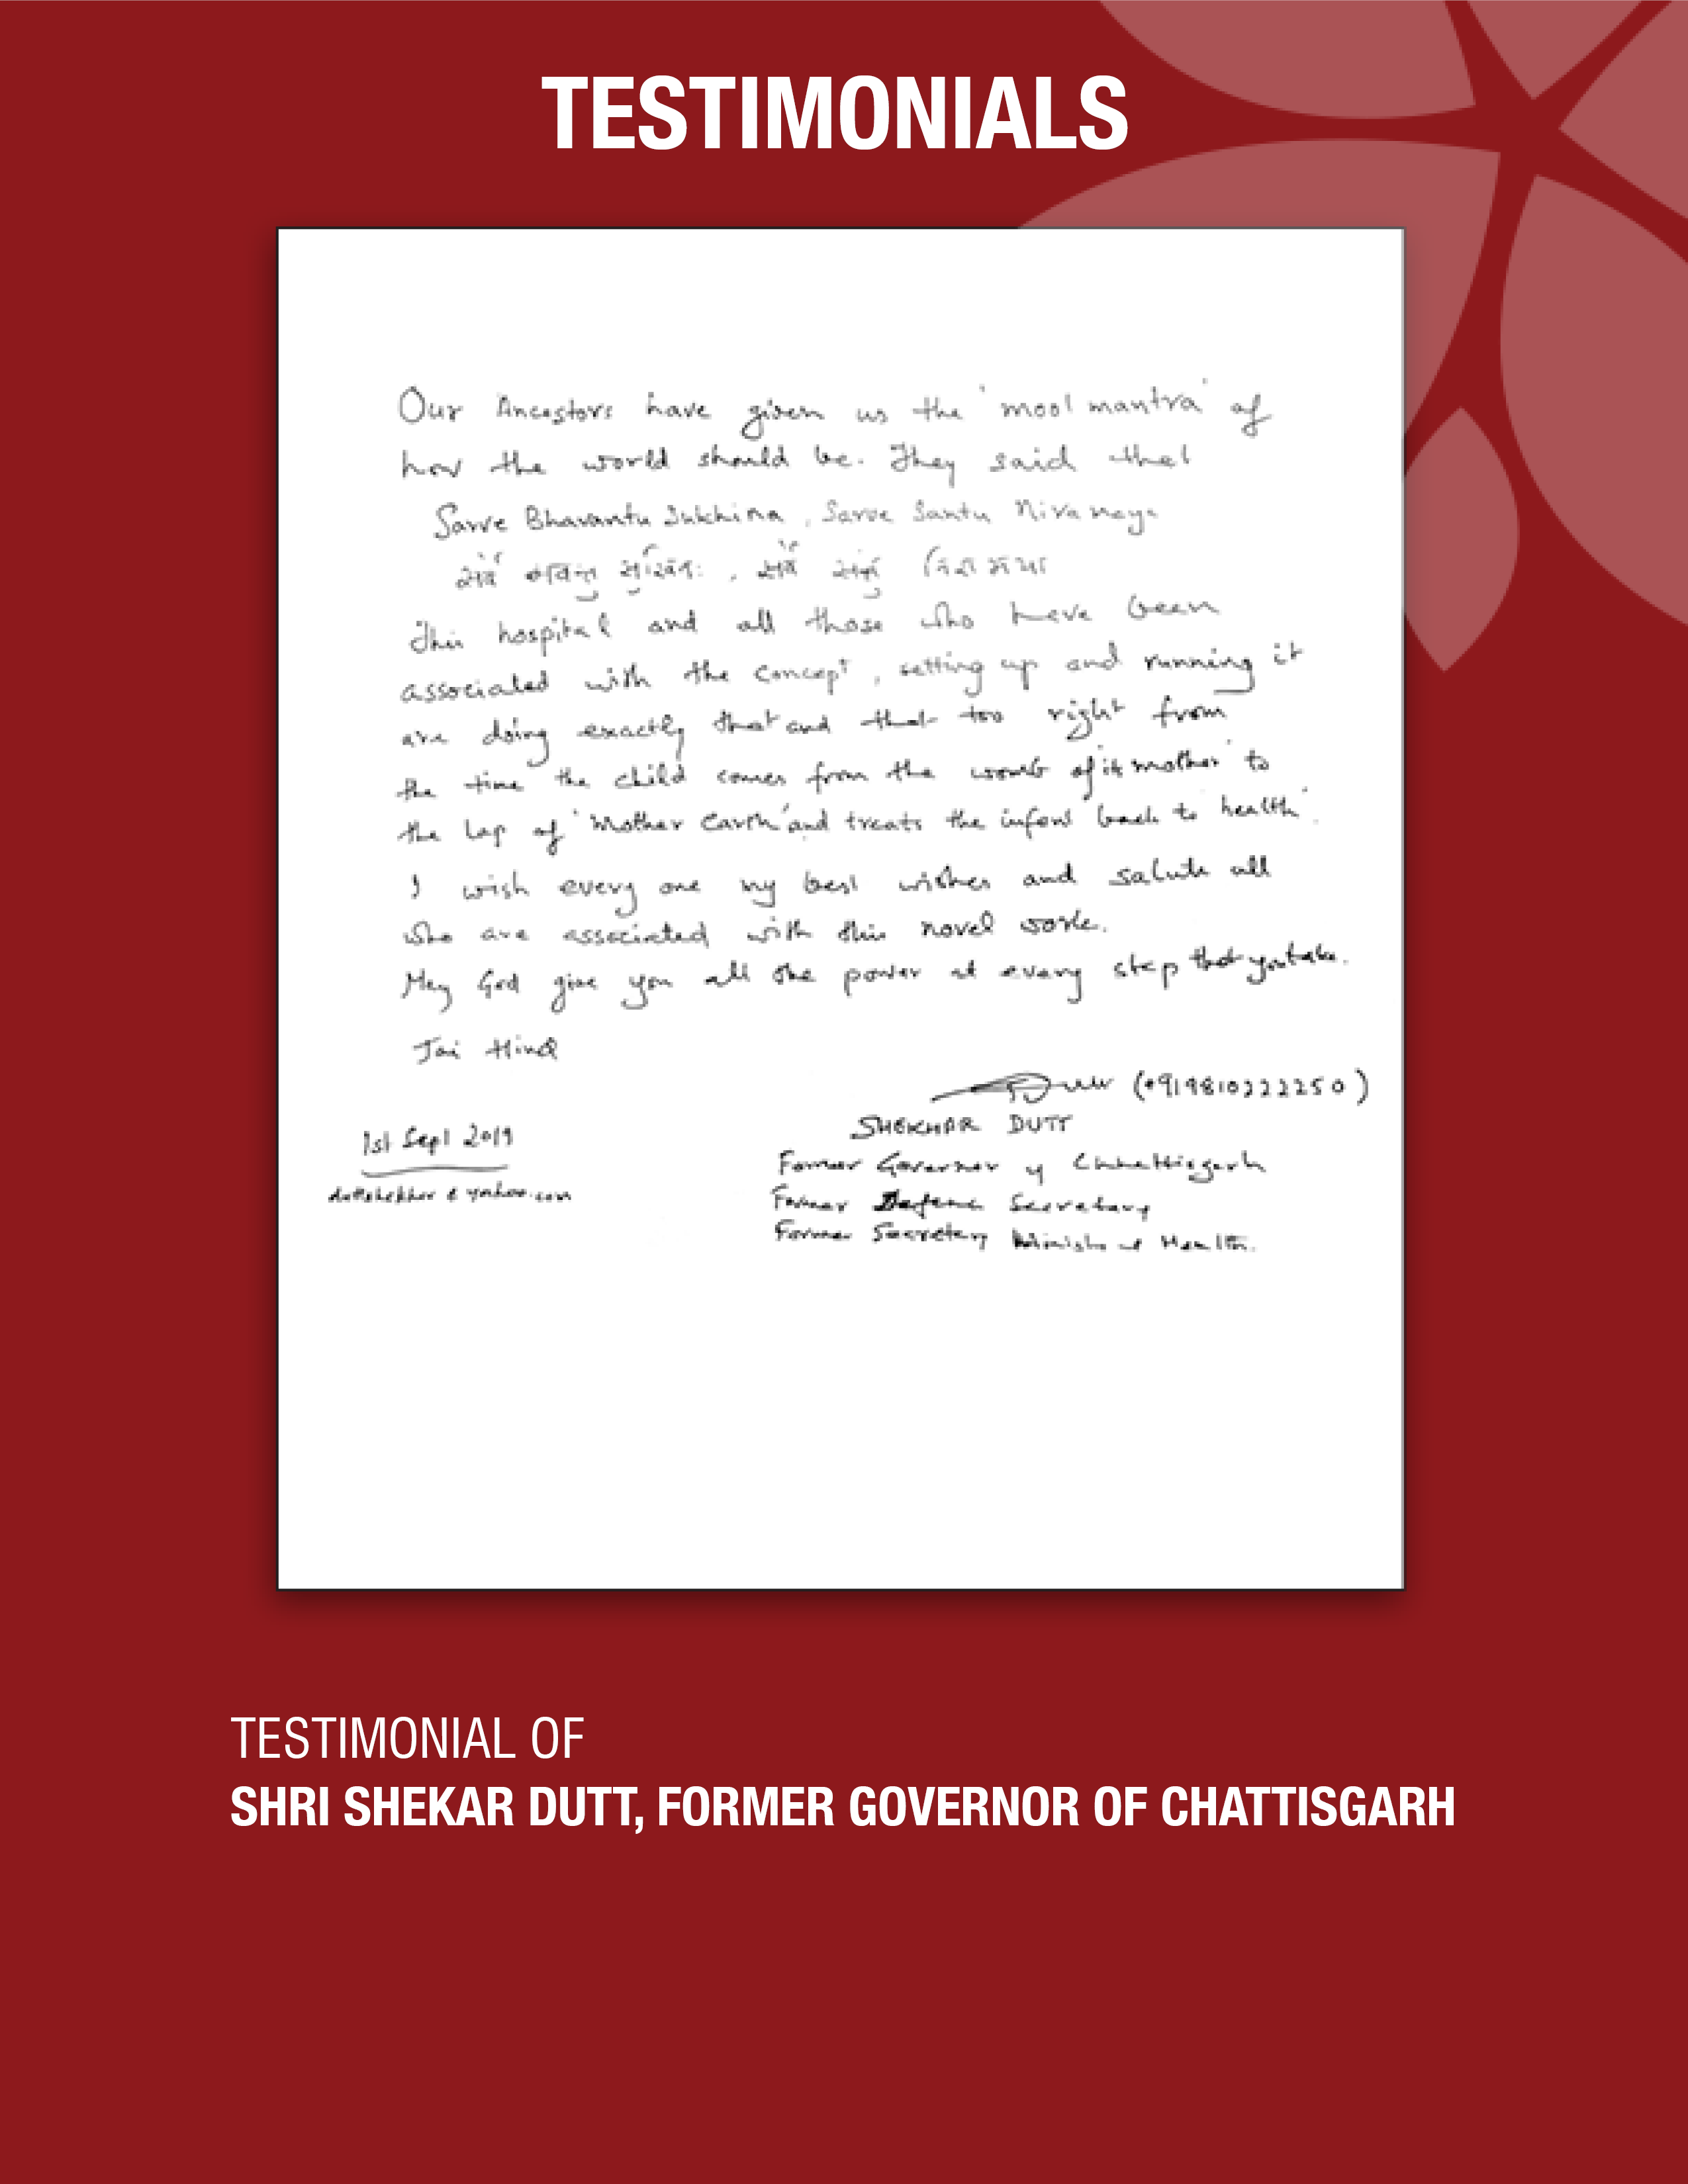 TESTIMONIALS
Our Ancestors have given us the 'mool mantra' of
how the world should be. They said that
Sarve Bhavantu Sukhina, Sarve Santu Niramaya
सर्वे भवन्तु सुखिनः, सर्वे सन्तु निरामया
This hospital and all those who have been
associated with the concept, setting up and running it
are doing exactly that and that too right from
the time the child comes from the womb of its mother to
the lap of 'Mother Earth' and treats the infant back to 'health'.
I wish every one my best wishes and salute all
who are associated with this novel work.
May God give you all the power at every step that you take.
Jai Hind
(+919810222250)
SHEKHAR DUTT
1st Sept 2019
Former Governor of Chhattisgarh
duttshekhar@yahoo.com
Former Defence Secretary
Former Secretary Health.
TESTIMONIAL OF
SHRI SHEKAR DUTT, FORMER GOVERNOR OF CHATTISGARH